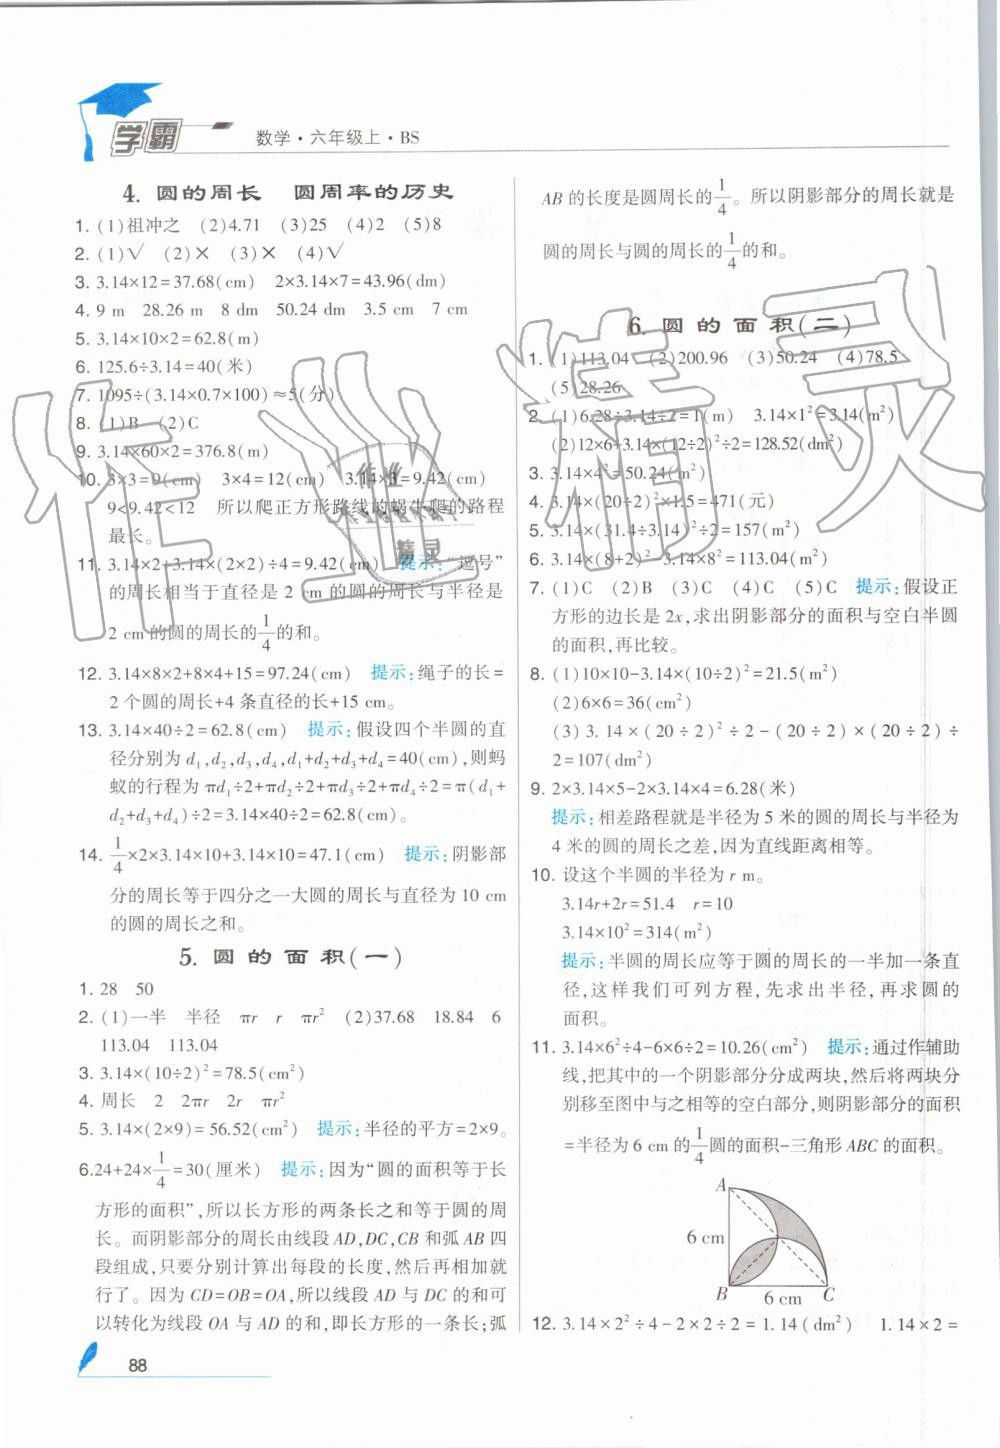 学霸 数学·六年级上·BS
4. 圆的周长 圆周率的历史
1. (1)祖冲之 (2)4.71 (3)25 (4)2 (5)8
2. (1)√ (2)× (3)× (4)√
3. 3.14×12=37.68(cm) 2×3.14×7=43.96(dm)
4. 9 m 28.26 m 8 dm 50.24 dm 3.5 cm 7 cm
5. 3.14×10×2=62.8(m)
6. 125.6÷3.14=40(米)
7. 1095÷(3.14×0.7×100)≈5(分)
8. (1)B (2)C
9. 3.14×60×2=376.8(m)
10. 3×3=9(cm) 3×4=12(cm) 3.14×3=9.42(cm)
9<9.42<12 所以爬正方形路线的蜗牛爬的路程
最长。
11. 3.14×2+3.14×(2×2)÷4=9.42(cm) 提示:“逗号”
的周长相当于直径是 2 cm 的圆的周长与半径是
2 cm 的圆的周长的1/4的和。
12. 3.14×8×2+8×4+15=97.24(cm) 提示:绳子的长=
2 个圆的周长+4 条直径的长+15 cm。
13. 3.14×40÷2=62.8(cm) 提示:假设四个半圆的直
径分别为 d₁,d₂,d₃,d₄,d₁+d₂+d₃+d₄=40(cm),则蚂
蚁的行程为 πd₁÷2+πd₂÷2+πd₃÷2+πd₄÷2=π(d₁+
d₂+d₃+d₄)÷2=3.14×40÷2=62.8(cm)。
14. 1/4×2×3.14×10+3.14×10=47.1(cm) 提示:阴影部
分的周长等于四分之一大圆的周长与直径为 10 cm
的圆的周长之和。
5. 圆的面积(一)
1. 28 50
2. (1)一半 半径 πr r πr² (2)37.68 18.84 6
113.04 113.04
3. 3.14×(10÷2)²=78.5(cm²)
4. 周长 2 2πr 2r πr²
5. 3.14×(2×9)=56.52(cm²) 提示:半径的平方=2×9。
6.24+24×1/4=30(厘米) 提示:因为“圆的面积等于长
方形的面积”,所以长方形的两条长之和等于圆的周
长。而阴影部分的周长由线段 AD,DC,CB 和弧 AB 四
段组成,只要分别计算出每段的长度,然后再相加就
行了。因为 CD=OB=OA,所以线段 AD 与 DC 的和可
以转化为线段 OA 与 AD 的和,即长方形的一条长;弧
88
AB 的长度是圆周长的1/4。所以阴影部分的周长就是
圆的周长与圆的周长的1/4的和。
6. 圆的面积(二)
1. (1)113.04 (2)200.96 (3)50.24 (4)78.5
(5)28.26
2. (1)6.28÷3.14÷2=1(m) 3.14×1²=3.14(m²)
(2)12×6+3.14×(12÷2)²÷2=128.52(dm²)
3. 3.14×4²=50.24(m²)
4. 3.14×(20÷2)²×1.5=471(元)
5. 3.14×(31.4÷3.14)²÷2=157(m²)
6. 3.14×(8+2)²-3.14×8²=113.04(m²)
7. (1)C (2)B (3)C (4)C (5)C 提示:假设正
方形的边长是 2x,求出阴影部分的面积与空白半圆
的面积,再比较。
8. (1)10×10-3.14×(10÷2)²=21.5(m²)
(2)6×6=36(cm²)
(3)3.14×(20÷2)²÷2-(20÷2)×(20÷2)÷
2=107(dm²)
9. 2×3.14×5-2×3.14×4=6.28(米)
提示:相差路程就是半径为 5 米的圆的周长与半径为
4 米的圆的周长之差,因为直线距离相等。
10. 设这个半圆的半径为 r m。
3.14r+2r=51.4 r=10
3.14×10²=314(m²)
提示:半圆的周长应等于圆的周长的一半加一条直
径,这样我们可列方程,先求出半径,再求圆的
面积。
11. 3.14×6²÷4-6×6÷2=10.26(cm²) 提示:通过作辅助
线,把其中的一个阴影部分分成两块,然后将两块分
别移至图中与之相等的空白部分,则阴影部分的面积
=半径为 6 cm 的1/4圆的面积-三角形 ABC 的面积。
A
6 cm
B 6 cm C
12. 3.14×2²÷4-2×2÷2=1.14(dm²) 1.14×2=
作业精灵
作业
精灵